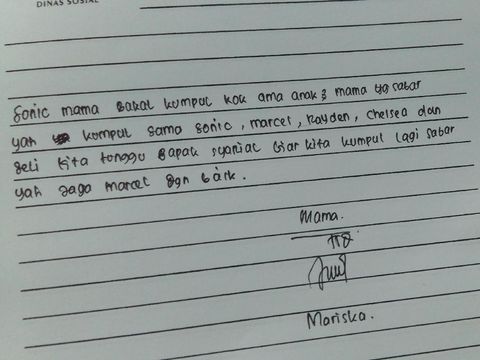 DINAS SOSIAL
Sonic mama bakal kumpul kok ama anak² mama yg sabar
yah kumpul sama sonic, marcel, Rayden, Chelsea dan
seli kita tunggu bapak syahrial biar kita kumpul lagi sabar
yah jaga marcel dgn baik.
Mama.
TTD
Mariska.